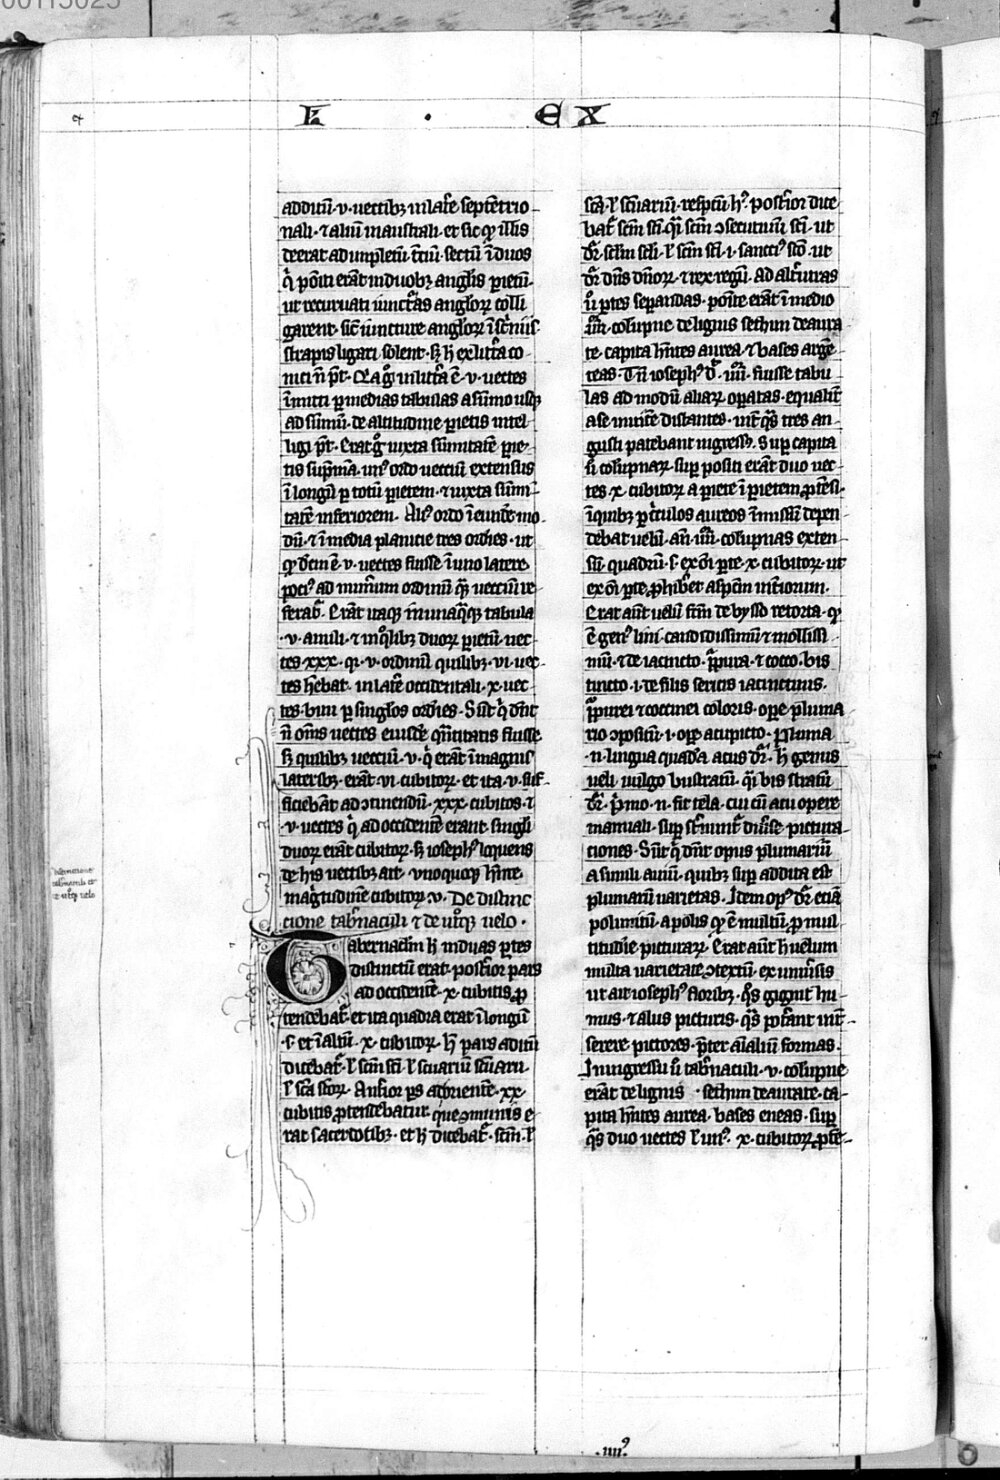 00113023
L · EX
additū · v · uectibꝫ in lat̄e septētrio-
nali · ⁊ aliū in australi · et sic qͥ illis
deerat ad inpletū t̄ciū · sectū ī duos
qͥ pōiti erāt in duobꝫ anglis pietū ·
ut recuruati iūct̄as angloꝝ colli
garent · sic̄ iūcture angloꝝ ī sc̄niis
strapis ligari solent · sꝫ h̄ ex litt̄a co-
nici n̄ pt̄ · Qꝛ aḡ in litt̄a ē · v · uectes
īmitti ꝑ medias tabulas a sūmo usqꝫ
ad sūmū · de altitudine pietis intel-
ligi pt̄ · Erat ḡ iuxta sūmitatē pie-
tis sup̄ma · un᷒ ordo uectiū extensus
ī longū ꝑ totū pietem · ⁊ iuxta sūmi-
tatē inferiorem · Ali᷒ ordo ī eundē mo-
dū · ⁊ ī media planicie tres ordīes · ut
qͥ dc̄m ē · v · uectes fuisse ī uno latere
poci᷒ ad nūmum ordinū qͣꝫ uectiū re-
feratͬ · Erāt itaqꝫ in unaqͣqꝫ tabula
· v · anuli · ⁊ in qͦlibꝫ duoꝝ pietū uec-
tes xxx · qꝛ · v · ordinū quilibꝫ · vi · uec-
tes h̄ebat · in lat̄e occidentali · x · uec-
tes · bini ꝑ singlos ordīes · Sūt qͥ dn̄t
n̄ om̄s uectes eiusdē qn̄titatis fuisse
sꝫ quilibꝫ uectiū · v · qͥ erāt ī magnis
latersbꝫ · erāt · vi · cubitoꝝ · et ita · v · suf-
ficiebāt ad ꝯtinendū · xxx · cubitos · ⁊
· v · uectes qͥ ad occidentē erant · singli
duoꝝ erāt cubitoꝝ · sꝫ ioseph᷒ loquens
de his uectibꝫ ait · vnoquoqꝫ hn̄te
magͥtudinē cubitoꝝ · v · De distinc
cione tab̄naculi ⁊ de utͦqꝫ uelo ·
Tabernaclm h̄ in duas ꝑtes
distinctū erat · post̄ior pars
ad occidentē · x · cubitis ꝓ
tendebatͬ · et ita quadra erat ī longū
· s · et ī altū · x · cubitoꝝ · h̄ pars aditū
dicebatͬ · l̄ scm̄ sc̄i · l̄ sc̄uariū sc̄uarii ·
l̄ sc̄a sc̄oꝝ · Ant̄ior ꝑs ad orientē · xx ·
cubitis ꝓtendebatur · que ꝯmunis e-
rat sacerdotibꝫ · et h̄ dicebatͬ · scm̄ · l̄
sc̄a · l̄ sc̄uariū · respectū h᷒ · post̄ior dice
batͬ scm̄ sc̄i · qͣi scm̄ ꝯsecutiuū sc̄i · ut
dr̄ · sclm̄ scl̄i · l̄ scm̄ sc̄i · i · sancti᷒ sc̄o · ut
dr̄ dn̄s dn̄oꝝ · ⁊ rex regū · Ad alt̄utras
ū ꝑtes separādas · poīte erāt ī medio
iiiiͦr · colūpne de lignis sethim deaura
te · capita hn̄tes aurea · ⁊ bases argē-
teas · Tn̄ ioseph᷒ d̄ · iiii · fuisse tabu
las ad modū aliaꝝ oꝑatas · equalit̄
a se inuicē distantes · int̄ qͣs tres an-
gusti patebant ingress᷒ · Sup capita
ū colūpnaꝝ · suꝑ positi erāt duo uec-
tes · x · cubitoꝝ a piete ī pietem ꝓtēsi ·
ī quibꝫ ꝑ cͥculos aureos īmissū depen
debat uelū · an̄ · iiii · colūpnas exten-
sū quadrū · s · ex oī ꝑte · x · cubitoꝝ · ut
ex oī ꝑte ꝓhib̄et aspctm̄ int̄iorum ·
Erat aūt uelū fcm̄ de bysso retorta · qͥ
ē gen᷒ lini candidissimū ⁊ mollissi
mū · ⁊ de iacincto · pͥpura · ⁊ cocco · bis
tincto · i · de filis sericis iacinctinis ·
pͥpurei ⁊ coccinei coloris · oꝑe pluma
rio ꝯpositū · i · oꝑe acu picto · Pluma
· n · lingua quadā acus dr̄ · h̄ genus
ueli uulgo bustratū · qͣi bis stratū
dr̄ · pͥmo · n · fit tela · cui cū acu opere
manuali · suꝑ st̄nūt diu̓se pictura-
ciones · Sūt qͥ dn̄t opus plumariū
a simili auiū · quibꝫ suꝑ addita est
plumarū uarietas · Idem op᷒ dr̄ eciā
polimitū · a polis qͥ ē multū · ꝓ mul
titudīe picturaꝝ · Erat aūt h̄ uelum
multa uarietate ꝯtextū · ex uniu̓sis
ut ait ioseph᷒ floribꝫ · qͦs gignit hu-
mus · ⁊ aliis picturis · qͣs pot̄ant int̄-
serere pictores · p̄ter aīaliū formas ·
In ingressu ū tab̄naculi · v · colūpne
erāt de lignis · sethim deaurate · ca-
pita hn̄tes aurea · bases eneas · suꝑ
qͣs duo uectes l̄ un᷒ · x · cubitoꝝ ꝓtē-
· iiii᷒